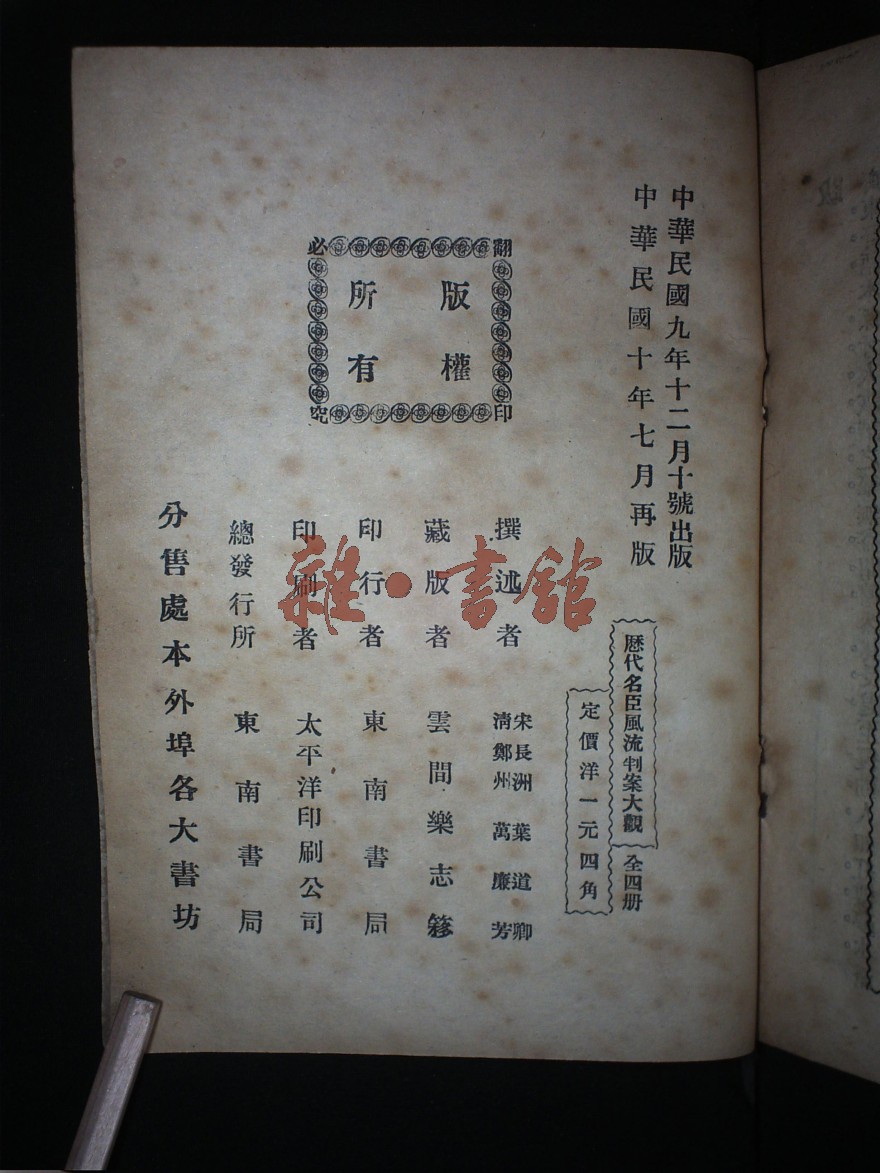 中華民國九年十二月十號出版
中華民國十年七月再版
歷代名臣風流判案大觀 全四册
定價洋一元四角
翻印必究
版權所有
撰述者 宋長洲葉道卿
清鄭州萬廉芳
藏版者 雲間樂志簃
印行者 東南書局
印刷者 太平洋印刷公司
總發行所 東南書局
分售處本外埠各大書坊
雜·書館